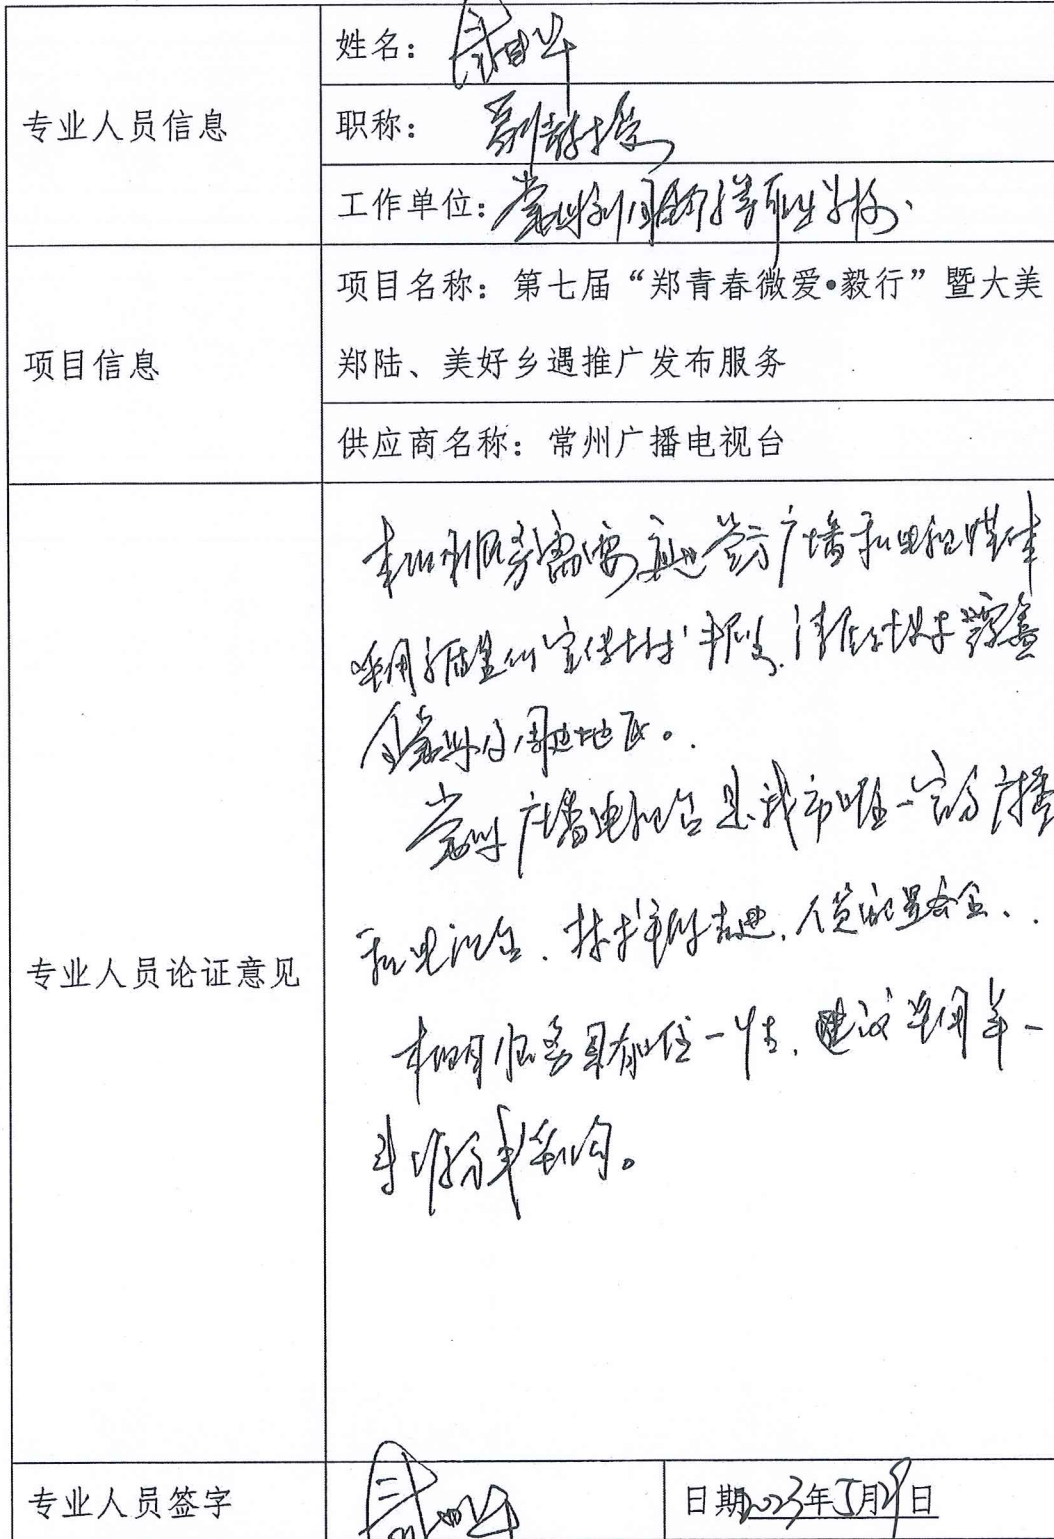 专业人员信息
姓名：
职称：副教授
工作单位：常州刘国钧高等职业学校
项目信息
项目名称：第七届“郑青春微爱•毅行”暨大美
郑陆、美好乡遇推广发布服务
供应商名称：常州广播电视台
专业人员论证意见
本项目服务需要通过官方广播和电视媒体
采用 宣传 覆盖
全常州及周边地区。
常州广播电视台是我市唯一官方广播
和电视台，技术 先进，人员配置齐全、
本项目服务具有唯一性，建议采用单一
来源方式采购。
专业人员签字
日期2023年5月29日